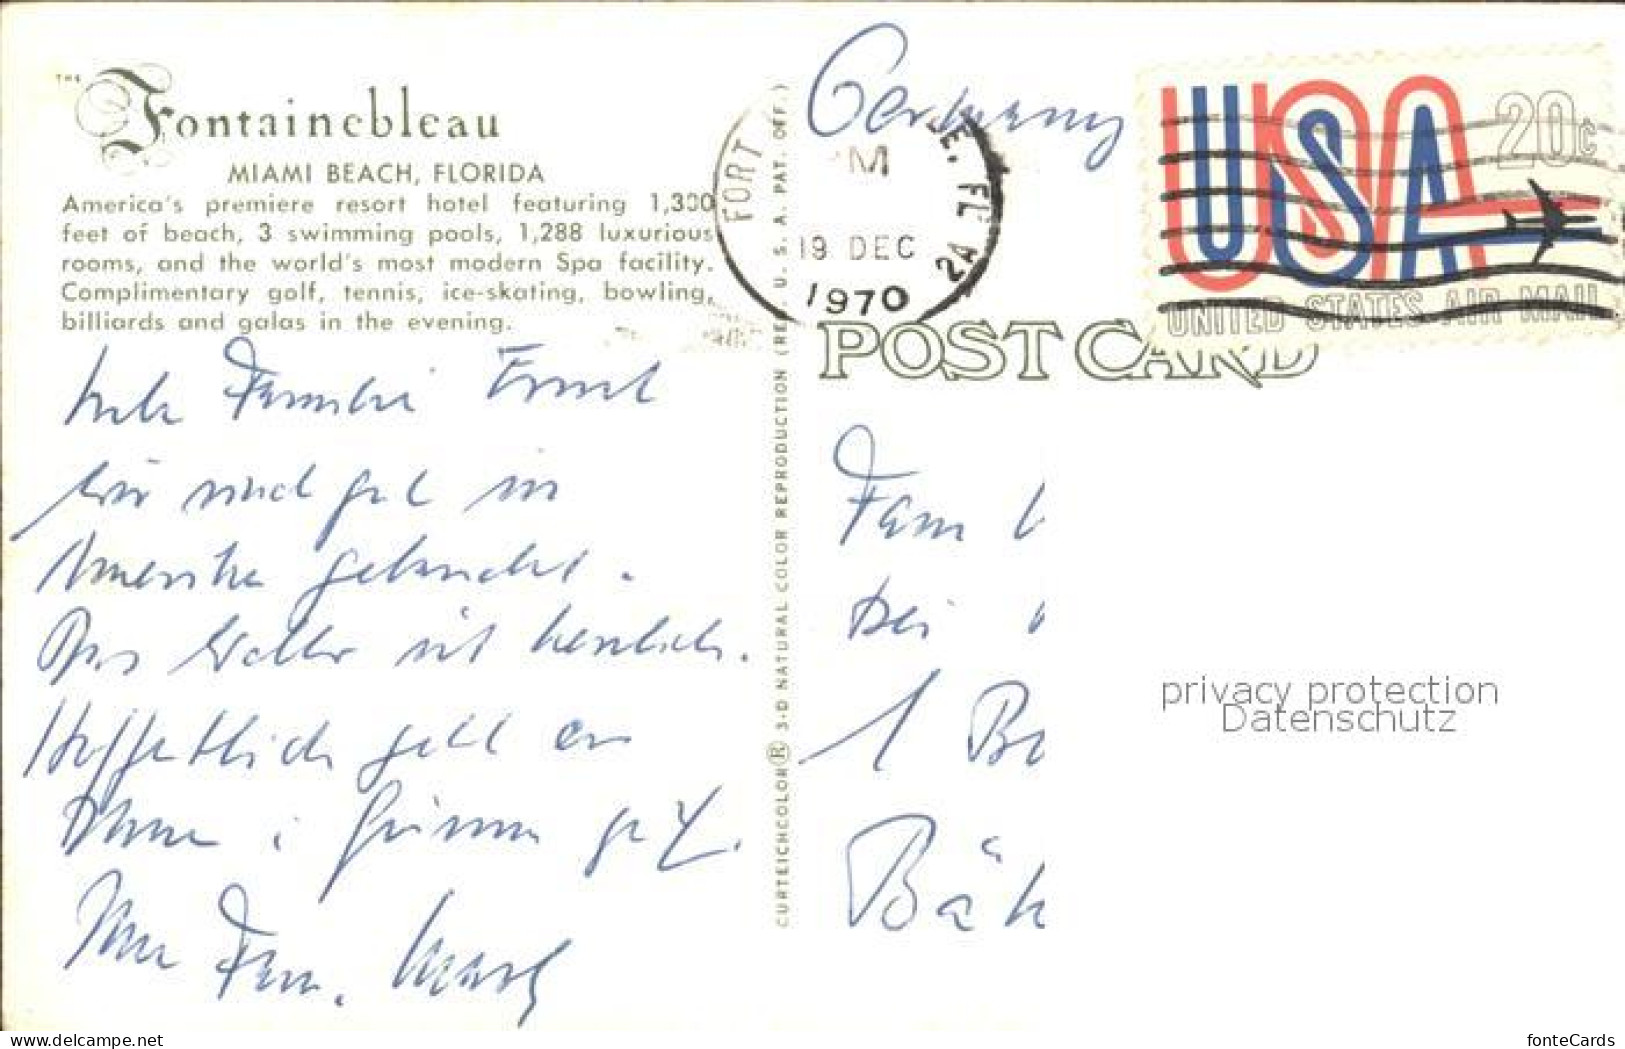 THE
Fontainebleau
MIAMI BEACH, FLORIDA
America's premiere resort hotel featuring 1,300
feet of beach, 3 swimming pools, 1,288 luxurious
rooms, and the world's most modern Spa facility.
Complimentary golf, tennis, ice-skating, bowling,
billiards and galas in the evening.
Familie
wir sind gut in
Amerika gelandet.
Das Wetter ist herrlich.
Hoffentlich geht es
Ihre Fam.
CURTEICHCOLOR® 3-D NATURAL COLOR REPRODUCTION (REG. U.S.A. PAT. OFF.)
Germany
FORT
PM
19 DEC
1970
FL
USA 20c
UNITED STATES AIR MAIL
POST CARD
Fam
bei
1 B
Bäh
privacy protection
Datenschutz
www.delcampe.net
fonteCards